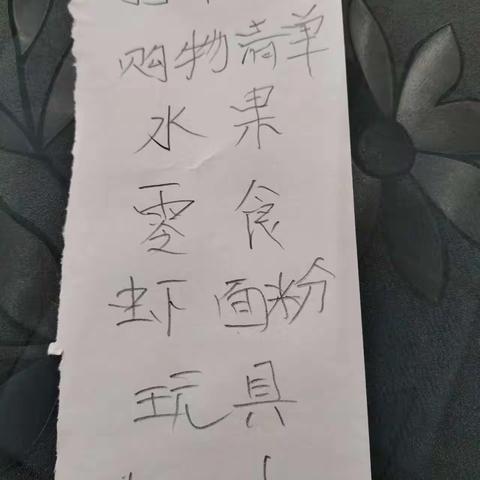 购物清单
水果
零食
虾 面粉
玩具